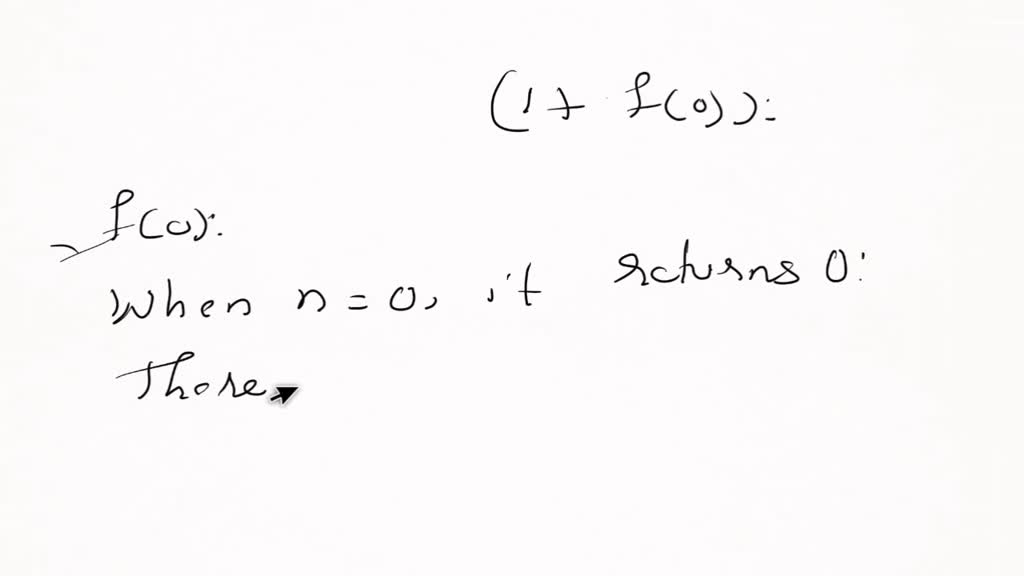 (1+ f(0)):
f(0):
When n=0, it returns 0:
Thore